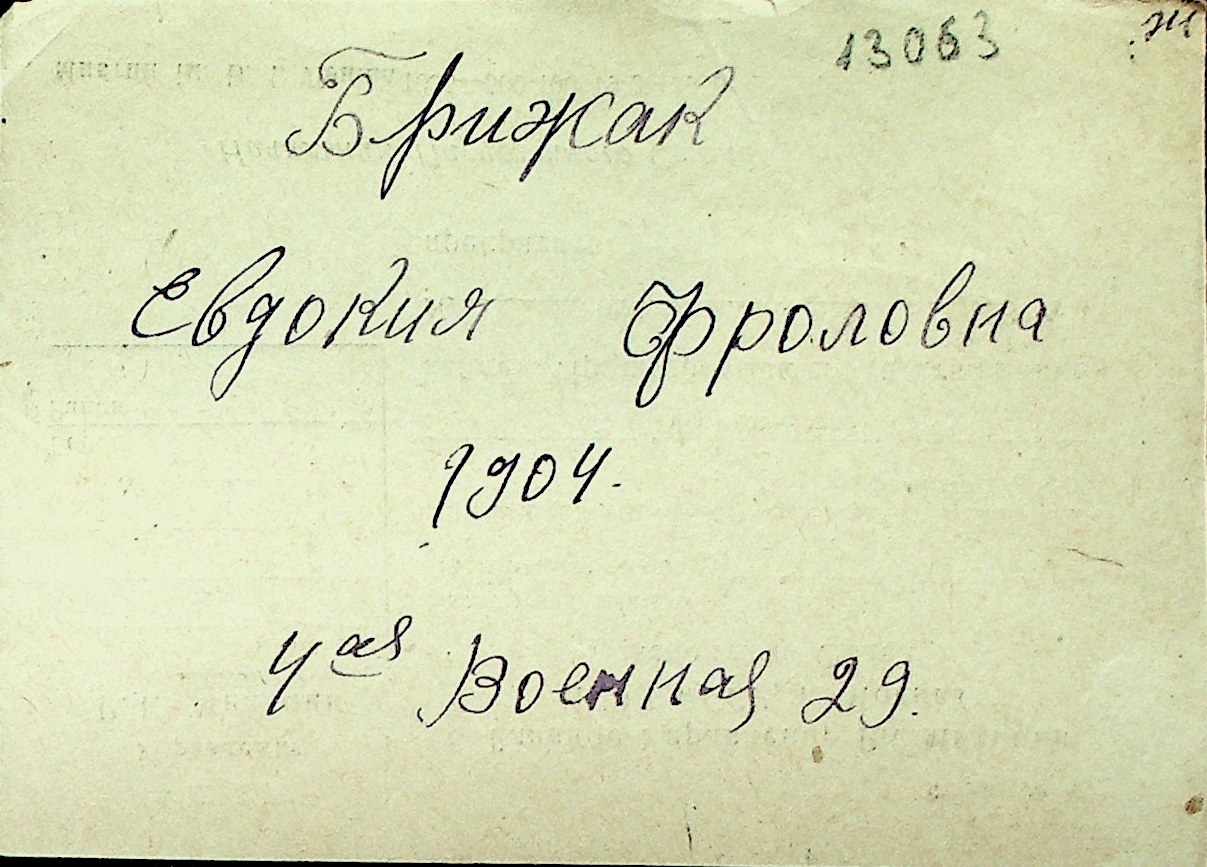 13063
Брижак
Евдокия Фроловна
1904.
4ая Военная 29.